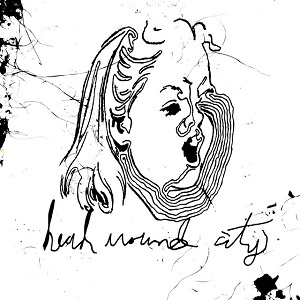 head wound city